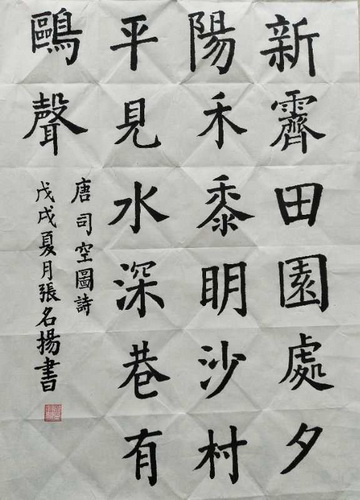 新霽田園處夕
陽禾黍明沙村
平見水深巷有
鷗聲
唐司空圖詩
戊戌夏月張名揚書